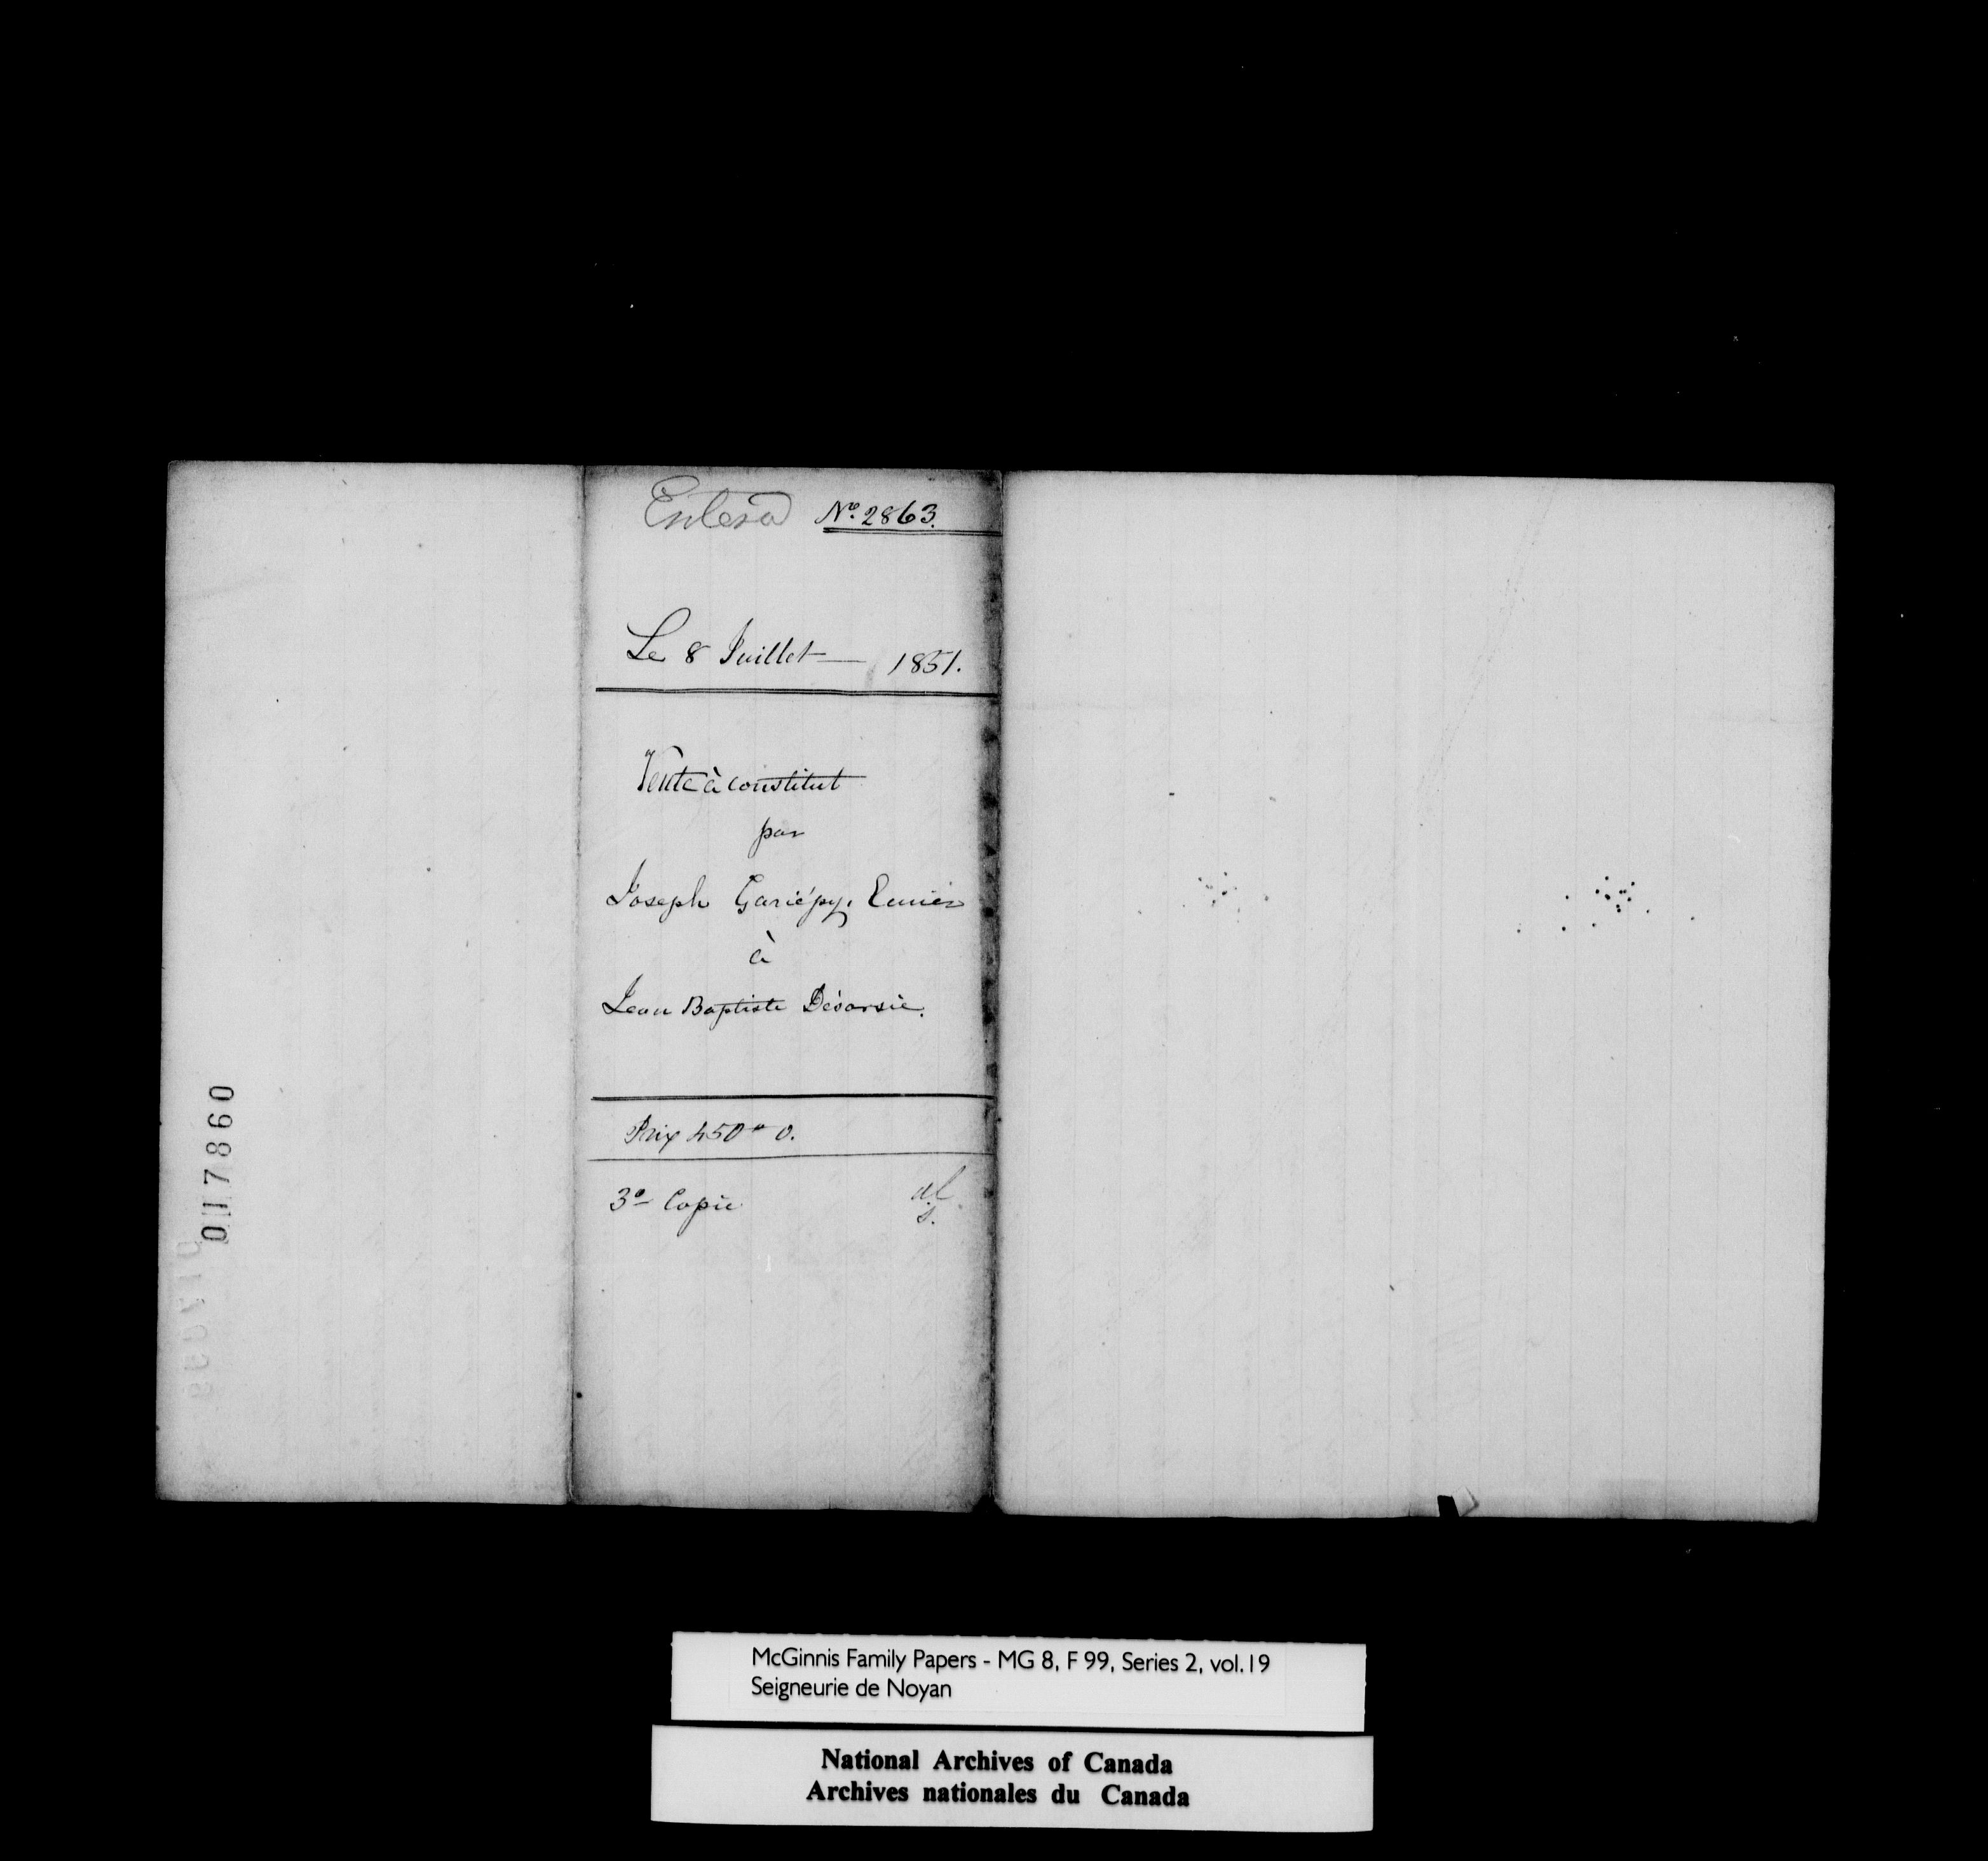 Entered No. 2863.
Le 8 Juillet — 1851.
Vente à constitut
par
Joseph Gariépy,
à
Jean Baptiste
Prix 450
3e Copie
017860
McGinnis Family Papers - MG 8, F 99, Series 2, vol.19
Seigneurie de Noyan
National Archives of Canada
Archives nationales du Canada